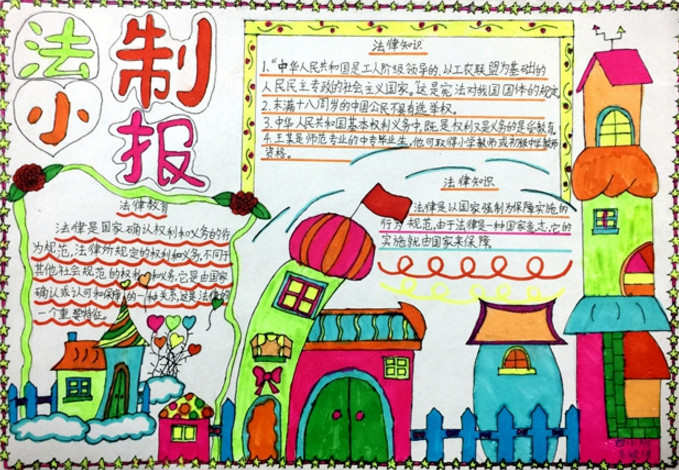 法制
小报
法律知识
1."中华人民共和国是工人阶级领导的,以工农联盟为基础的
人民民主专政的社会主义国家。这是宪法对我国国体的规定
2.未满十八周岁的中国公民不享有选举权。
3.中华人民共和国基本权利义务中,既是权利又是义务的是受教育。
4.王某是师范专业的中专毕业生,他可取得小学教师或初级中学教师
资格。
法律教育
法律是国家确认权利和义务的行
为规范,法律所规定的权利和义务,不同于
其他社会规范的权利和义务,它是由国家
确认或认可和保障的一种关系,这是法律的
一个重要特征。
法律知识
法律是以国家强制为保障实施的
行为规范,由于法律是一种国家意志,它的
实施就由国家来保障。